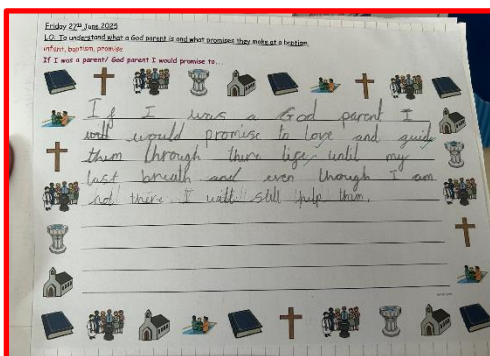 Friday 27th June 2025
LO: To understand what a God parent is and what promises they make at a baptism.
infant, baptism, promise
If I was a parent/ God parent I would promise to...
If I was a God parent I
will would promise to love and guide
them through there life until my
last breath and even though I am
not there I will still help them.